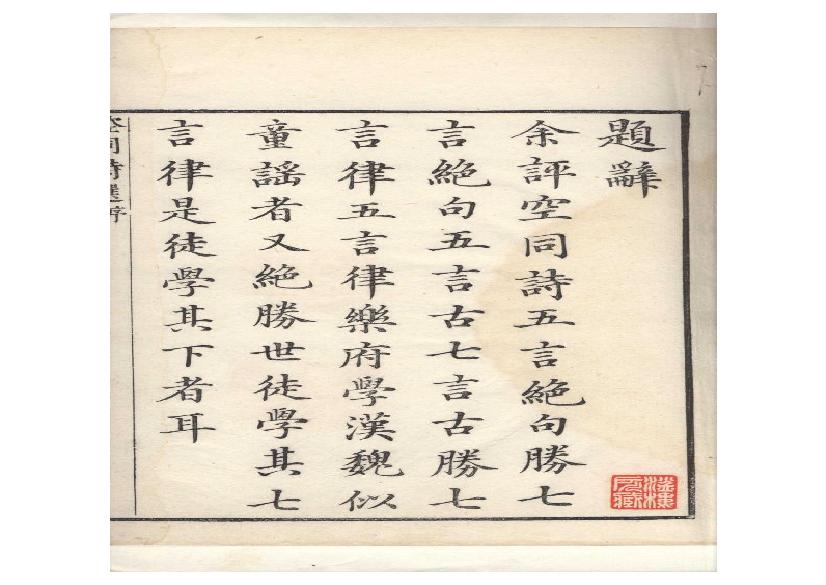 題辭
余評空同詩五言絕句勝七
言絕句五言古七言古勝七
言律五言律樂府學漢魏似
童謠者又絕勝世徒學其七
言律是徒學其下者耳
空同詩選序